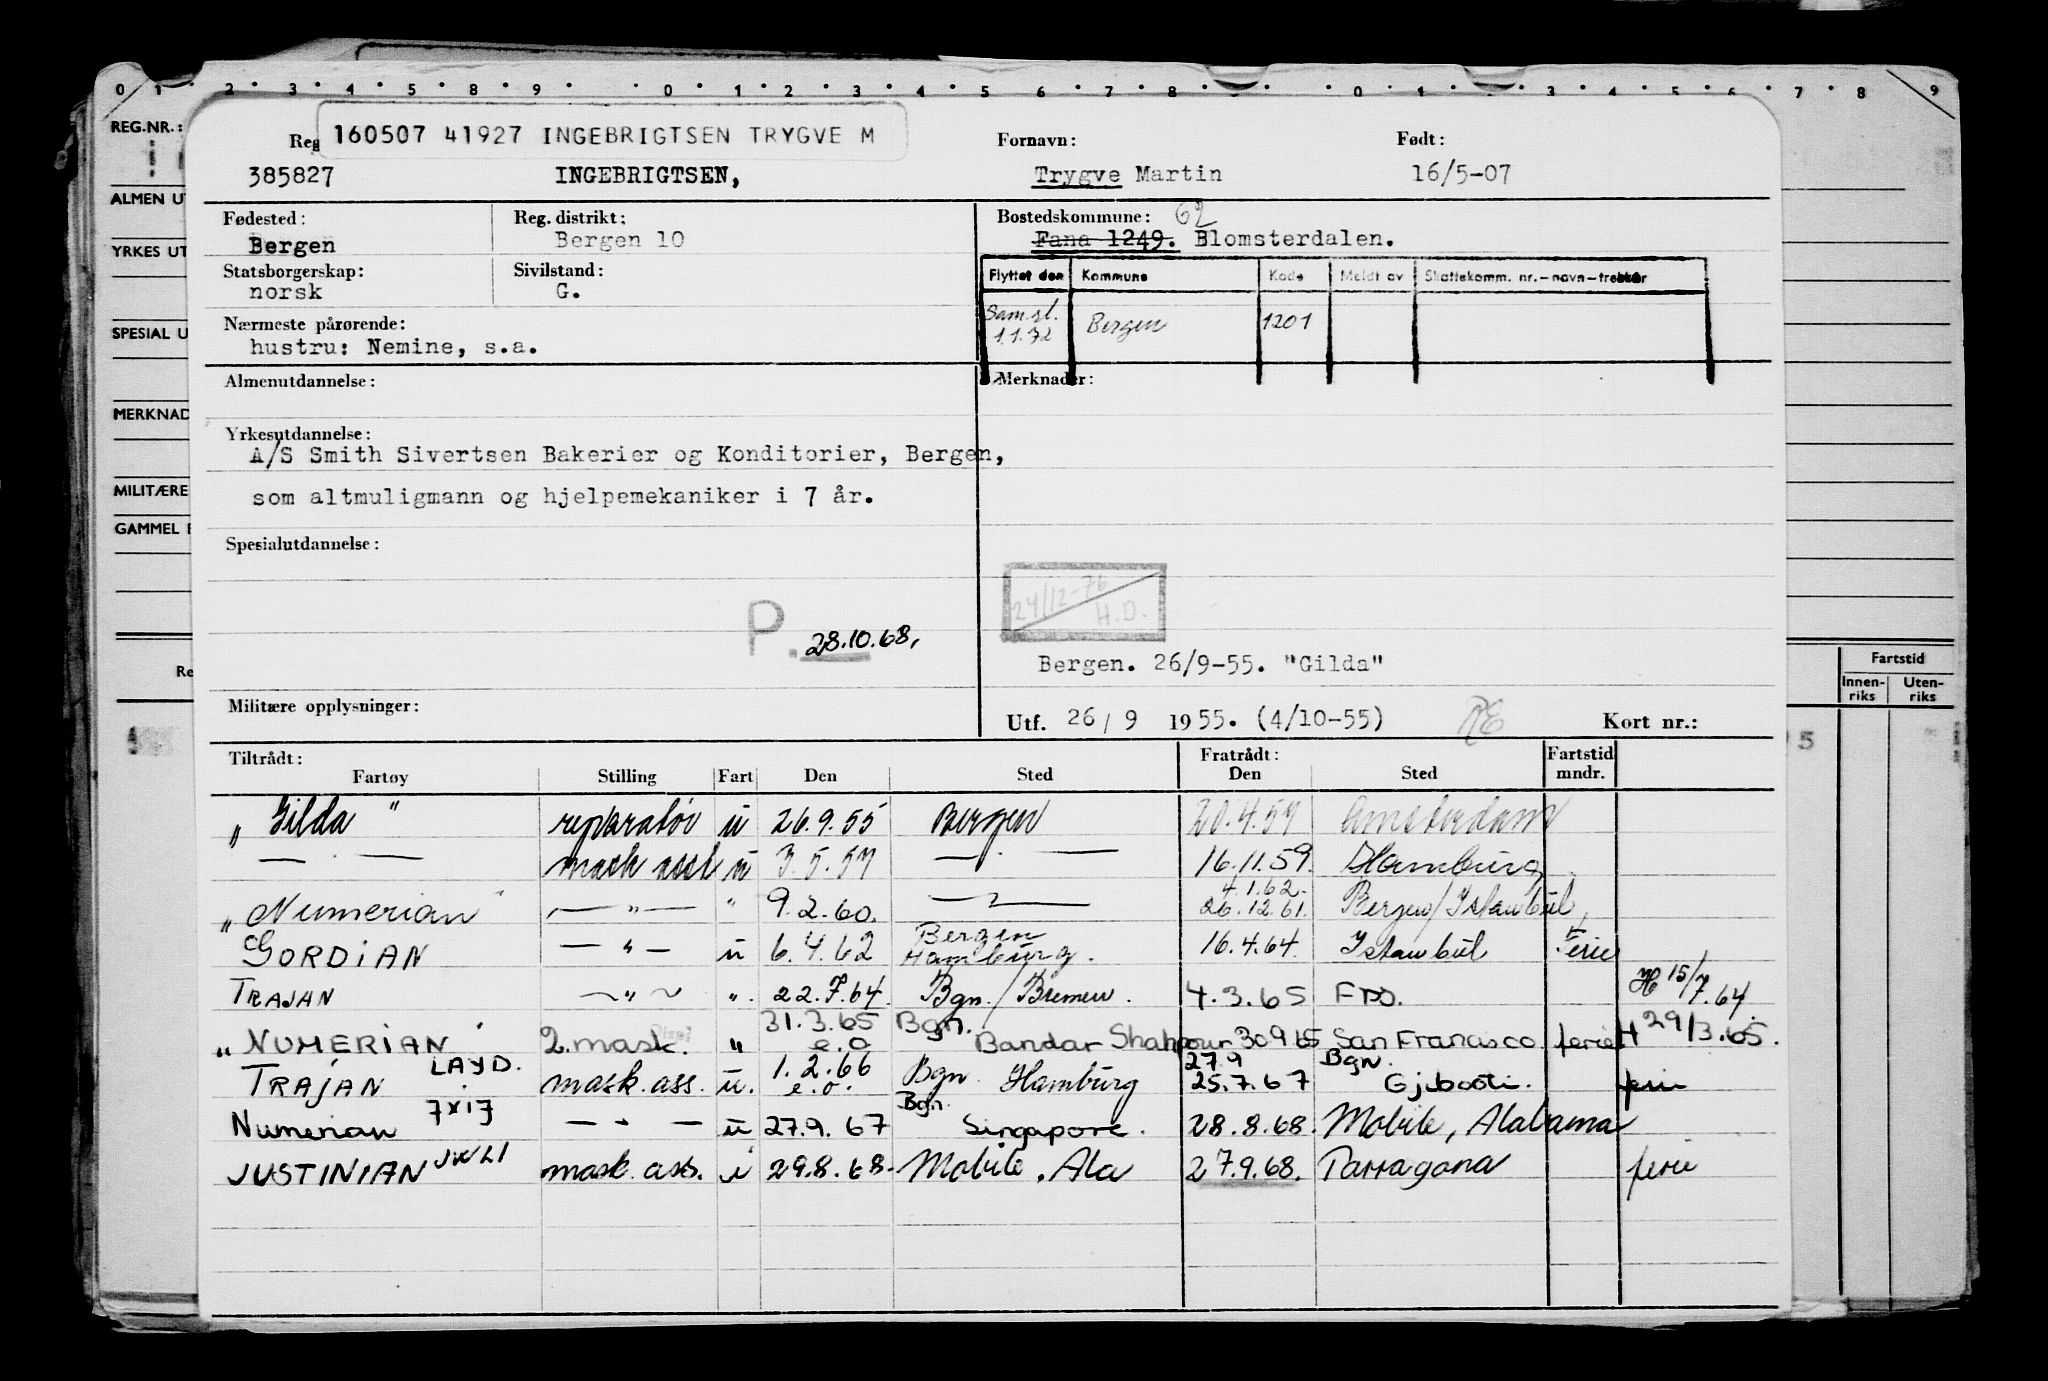 0 1 2 3 4 5 8 9 0 1 2 3 4 5 6 7 8 0 1 2 3 4 5 6 7 8 9
REG.NR.:
160507 41927 INGEBRIGTSEN TRYGVE M
Reg Fornavn: Født:
385827 INGEBRIGTSEN, Trygve Martin 16/5-07
ALMEN UT
Fødested: Reg. distrikt: Bostedskommune: 62
Bergen Bergen 10 Fana 1249. Blomsterdalen.
YRKES UT
Statsborgerskap: Sivilstand:
norsk G.
Flyttet den Kommune Kode Meldt av Skattekomm. nr.-navn-trekker
Sam.sl. 1.1.72 Bergen 1201
SPESIAL U
Nærmeste pårørende:
hustru: Nemine, s.a.
Almenutdannelse: Merknader:
MERKNAD
Yrkesutdannelse:
A/S Smith Sivertsen Bakerier og Konditorier, Bergen,
MILITÆRE
som altmuligmann og hjelpemekaniker i 7 år.
GAMMEL
Spesialutdannelse:
24/12-76
H.D.
P. 28.10.68.
Bergen. 26/9-55. "Gilda"
Re
Fartstid
Innen-riks Uten-riks
Militære opplysninger:
Utf. 26/9 1955. (4/10-55) RE Kort nr.:
5
Tiltrådt: Fratrådt: Fartstid
Fartøy Stilling Fart Den Sted Den Sted mndr.
"Gilda" reparatør u 26.9.55 Bergen 20.4.57 Amsterdam
— . — mask asst u 3.5.57 — . — 16.11.59. Hamburg
4.1.62.
"Numerian" — " — " 9.2.60. — " — 26.12.61. Bergen/Istanbul,
Bergen
GORDIAN — " — u 6.4.62 Hamburg. 16.4.64. Istanbul Ferie
TRAJAN — " — ". 22.7.64. Bgn./Bremen. 4.3.65 FBO. H 15/7.64.
31.3.65 Bgn.
"NUMERIAN" 2.mask. " e.o Bandar Shahpour 30965 San Francisco. ferie H 29/3.65.
LAYD. 1.2.66 27.9 Bgn.
TRAJAN mask.ass. u. e.o. Bgn. Hamburg 25.7.67 Gjibooti. ferie
JXIJ Bgn.
Numerian — " — u 27.9.67 Singapore. 28.8.68. Mobile, Alabama
JUSTINIAN JWLI mask. ass. u 29.8.68. Mobile, Ala 27.9.68. Tarragona ferie